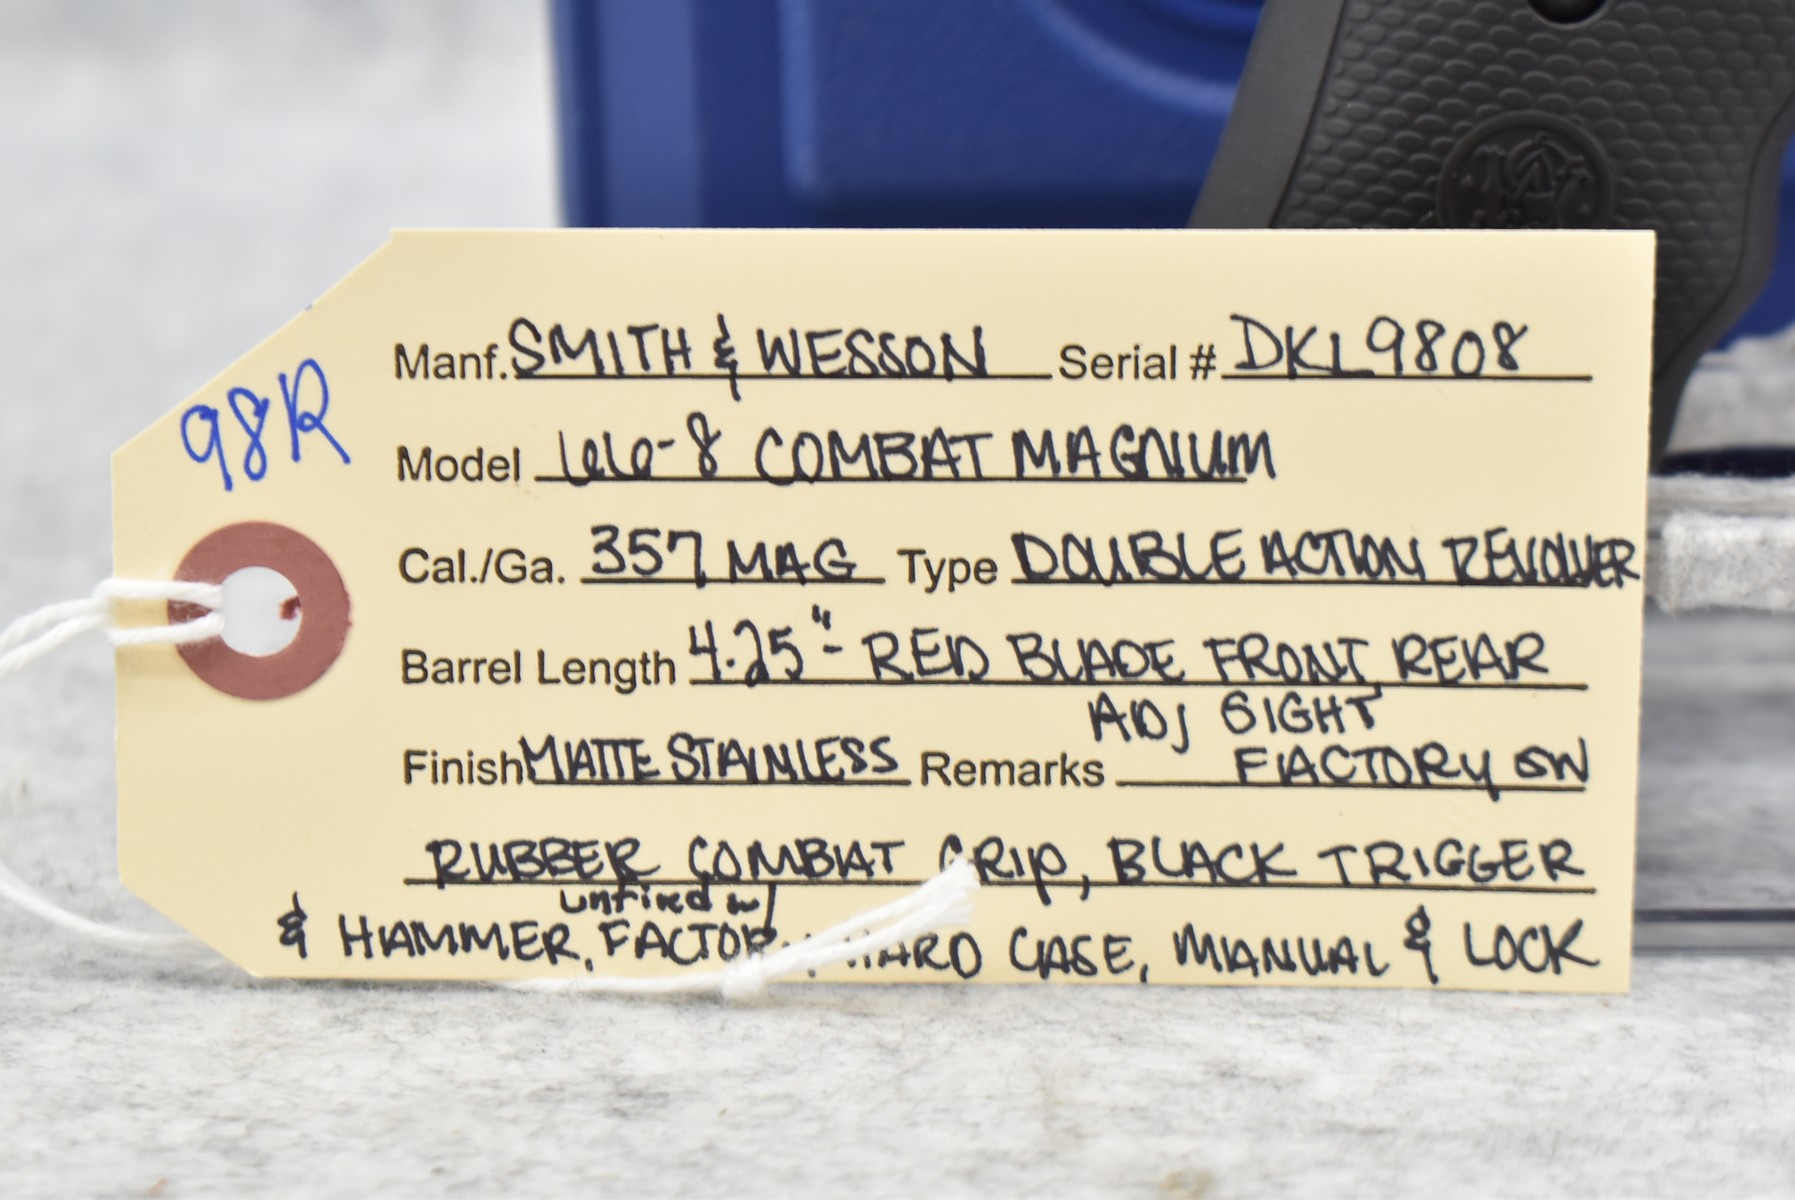 98R
Manf. SMITH & WESSON Serial # DKL9808
Model 66-8 COMBAT MAGNUM
Cal./Ga. 357 MAG Type DOUBLE ACTION REVOLVER
Barrel Length 4.25" - RED BLADE FRONT REAR
ADJ SIGHT
Finish MATTE STAINLESS Remarks FACTORY SW
RUBBER COMBAT GRIP, BLACK TRIGGER
unfired w/
& HAMMER, FACTORY HARD CASE, MANUAL & LOCK